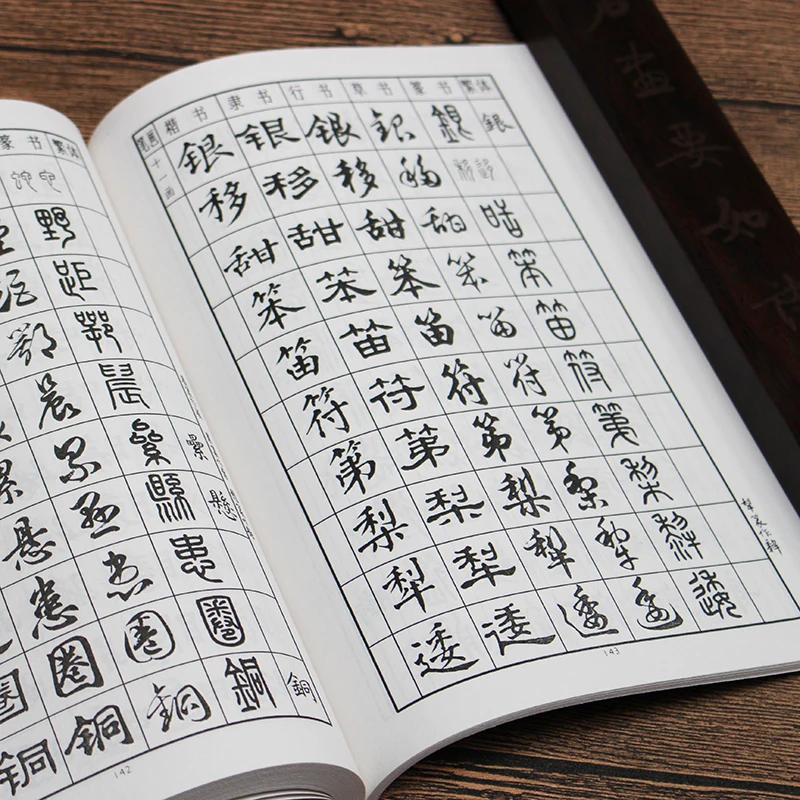 篆书 繁体
野
距
鄂 鄂
晨 晨
累 累 纍 纍
悬 悬 縣 懸
患 患 患
圈 圈 圈 圈
铜 铜 铜 銅 銅
142
笔画 楷书 隶书 行书 草书 篆书 繁体
十一画 银 银 银 银 銀 銀
移 移 移 移
甜 甜 甜 甜 甜
笨 笨 笨 笨 笨
笛 笛 笛 笛 笛
符 符 符 符 符
第 第 第 第 第
梨 梨 梨 梨 梨
犁 犁 犁 犁 犁
逶 逶 逶 逶 逶
143
要如